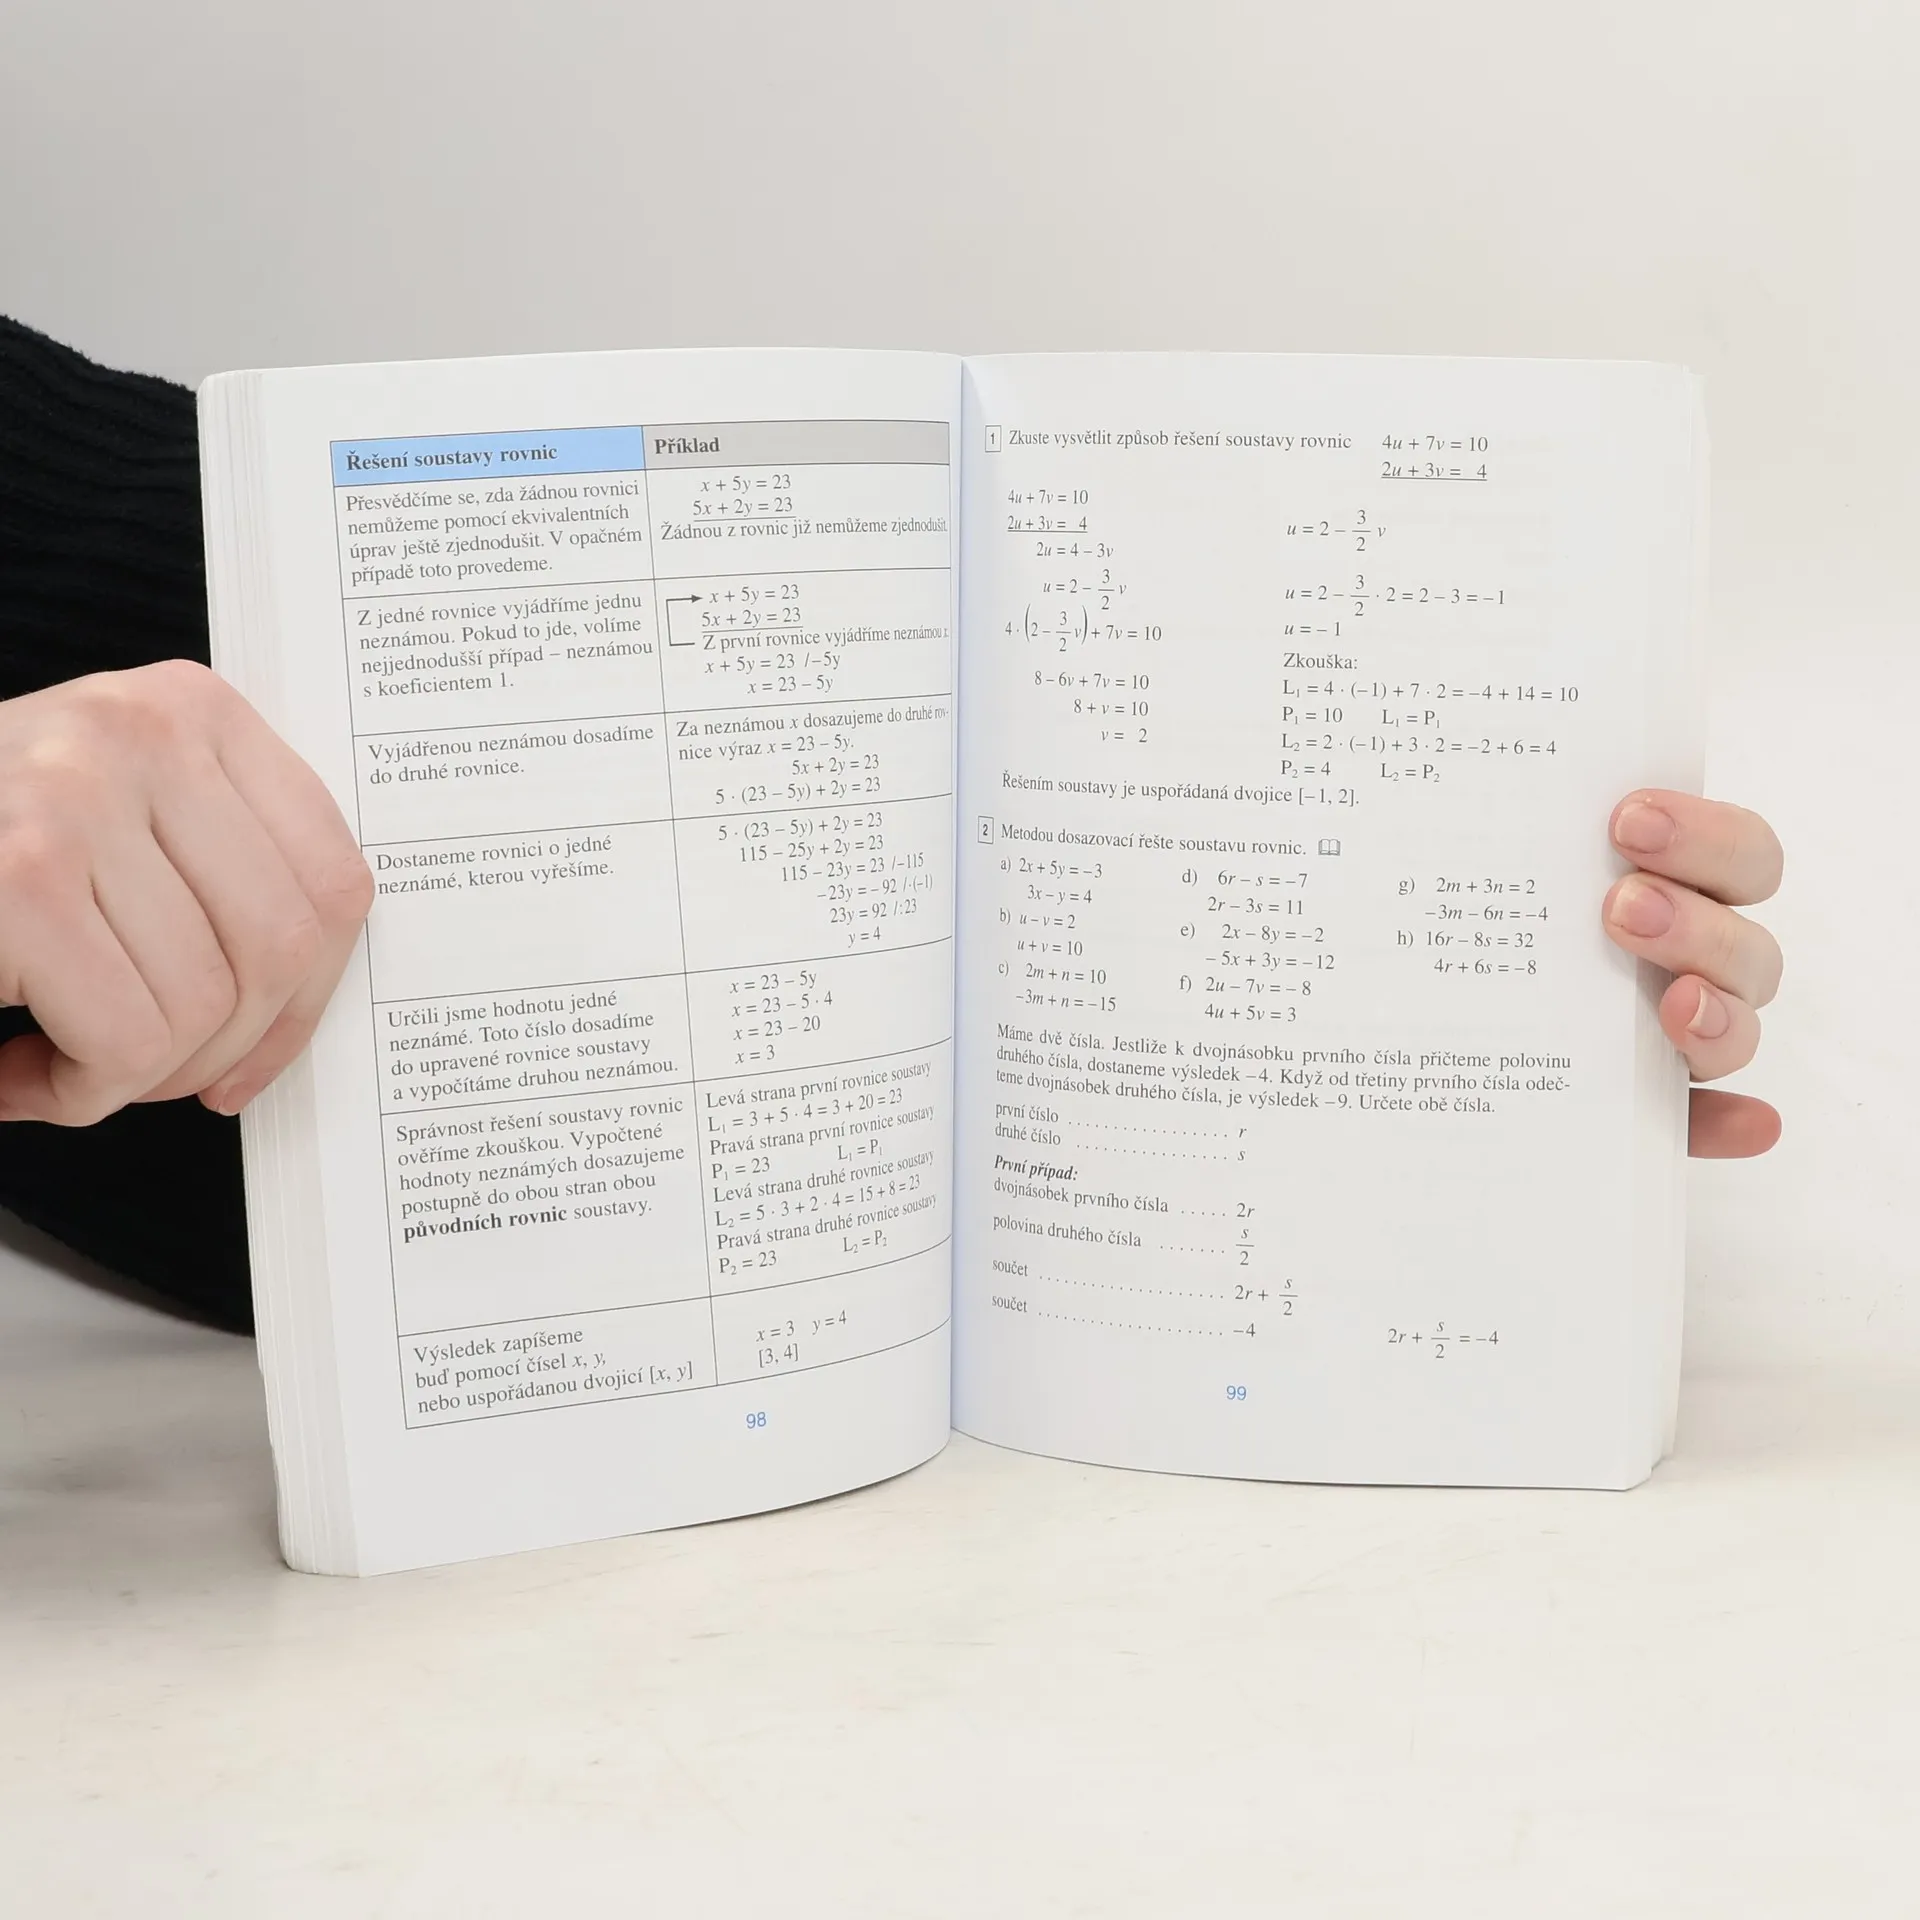 Řešení soustavy rovnic
Příklad
Přesvědčíme se, zda žádnou rovnici
nemůžeme pomocí ekvivalentních
úprav ještě zjednodušit. V opačném
případě toto provedeme.
x + 5y = 23
5x + 2y = 23
Žádnou z rovnic již nemůžeme zjednodušit.
Z jedné rovnice vyjádříme jednu
neznámou. Pokud to jde, volíme
nejjednodušší případ – neznámou
s koeficientem 1.
x + 5y = 23
5x + 2y = 23
Z první rovnice vyjádříme neznámou x.
x + 5y = 23 /–5y
x = 23 – 5y
Vyjádřenou neznámou dosadíme
do druhé rovnice.
Za neznámou x dosazujeme do druhé rov-
nice výraz x = 23 – 5y.
5x + 2y = 23
5 · (23 – 5y) + 2y = 23
Dostaneme rovnici o jedné
neznámé, kterou vyřešíme.
5 · (23 – 5y) + 2y = 23
115 – 25y + 2y = 23
115 – 23y = 23 /–115
–23y = – 92 /·(–1)
23y = 92 /:23
y = 4
Určili jsme hodnotu jedné
neznámé. Toto číslo dosadíme
do upravené rovnice soustavy
a vypočítáme druhou neznámou.
x = 23 – 5y
x = 23 – 5 · 4
x = 23 – 20
x = 3
Správnost řešení soustavy rovnic
ověříme zkouškou. Vypočtené
hodnoty neznámých dosazujeme
postupně do obou stran obou
původních rovnic soustavy.
Levá strana první rovnice soustavy
L₁ = 3 + 5 · 4 = 3 + 20 = 23
Pravá strana první rovnice soustavy
P₁ = 23 L₁ = P₁
Levá strana druhé rovnice soustavy
L₂ = 5 · 3 + 2 · 4 = 15 + 8 = 23
Pravá strana druhé rovnice soustavy
P₂ = 23 L₂ = P₂
Výsledek zapíšeme
buď pomocí čísel x, y,
nebo uspořádanou dvojicí [x, y]
x = 3 y = 4
[3, 4]
98
1 Zkuste vysvětlit způsob řešení soustavy rovnic 4u + 7v = 10
2u + 3v = 4
4u + 7v = 10
2u + 3v = 4
2u = 4 – 3v
u = 2 – 3/2 v
4 · (2 – 3/2 v) + 7v = 10
8 – 6v + 7v = 10
8 + v = 10
v = 2
u = 2 – 3/2 v
u = 2 – 3/2 · 2 = 2 – 3 = –1
u = – 1
Zkouška:
L₁ = 4 · (– 1) + 7 · 2 = –4 + 14 = 10
P₁ = 10 L₁ = P₁
L₂ = 2 · (– 1) + 3 · 2 = –2 + 6 = 4
P₂ = 4 L₂ = P₂
Řešením soustavy je uspořádaná dvojice [– 1, 2].
2 Metodou dosazovací řešte soustavu rovnic.
a) 2x + 5y = –3
3x – y = 4
b) u – v = 2
u + v = 10
c) 2m + n = 10
–3m + n = –15
d) 6r – s = –7
2r – 3s = 11
e) 2x – 8y = –2
– 5x + 3y = –12
f) 2u – 7v = – 8
4u + 5v = 3
g) 2m + 3n = 2
–3m – 6n = –4
h) 16r – 8s = 32
4r + 6s = –8
Máme dvě čísla. Jestliže k dvojnásobku prvního čísla přičteme polovinu
druhého čísla, dostaneme výsledek –4. Když od třetiny prvního čísla odeč-
teme dvojnásobek druhého čísla, je výsledek –9. Určete obě čísla.
první číslo . . . . . . . . . . . . . . . . . r
druhé číslo . . . . . . . . . . . . . . . . s
První případ:
dvojnásobek prvního čísla . . . . . 2r
polovina druhého čísla . . . . . . . s/2
součet . . . . . . . . . . . . . . . . . . . . 2r + s/2
součet . . . . . . . . . . . . . . . . . . . . –4 2r + s/2 = –4
99